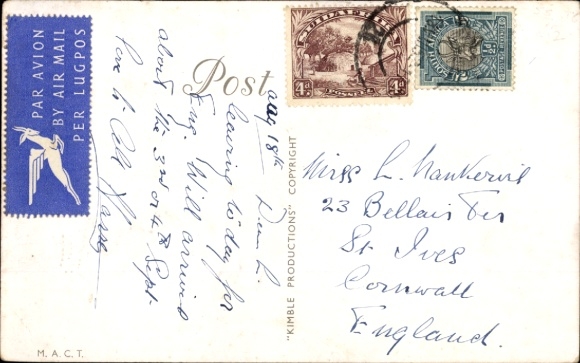 PAR AVION
BY AIR MAIL
PER LUGPOS
Post
SUIDAFRIKA
4D 4D
POSSEEL
Aug 18th
Dear L.
leaving to day for
Eng. Will arrive
about the 3rd or 4th Sept.
Love to all
"KIMBLE PRODUCTIONS" COPYRIGHT
Miss L. Nankervis
23 Bellair Ter
St Ives
Cornwall
England.
M. A. C. T.